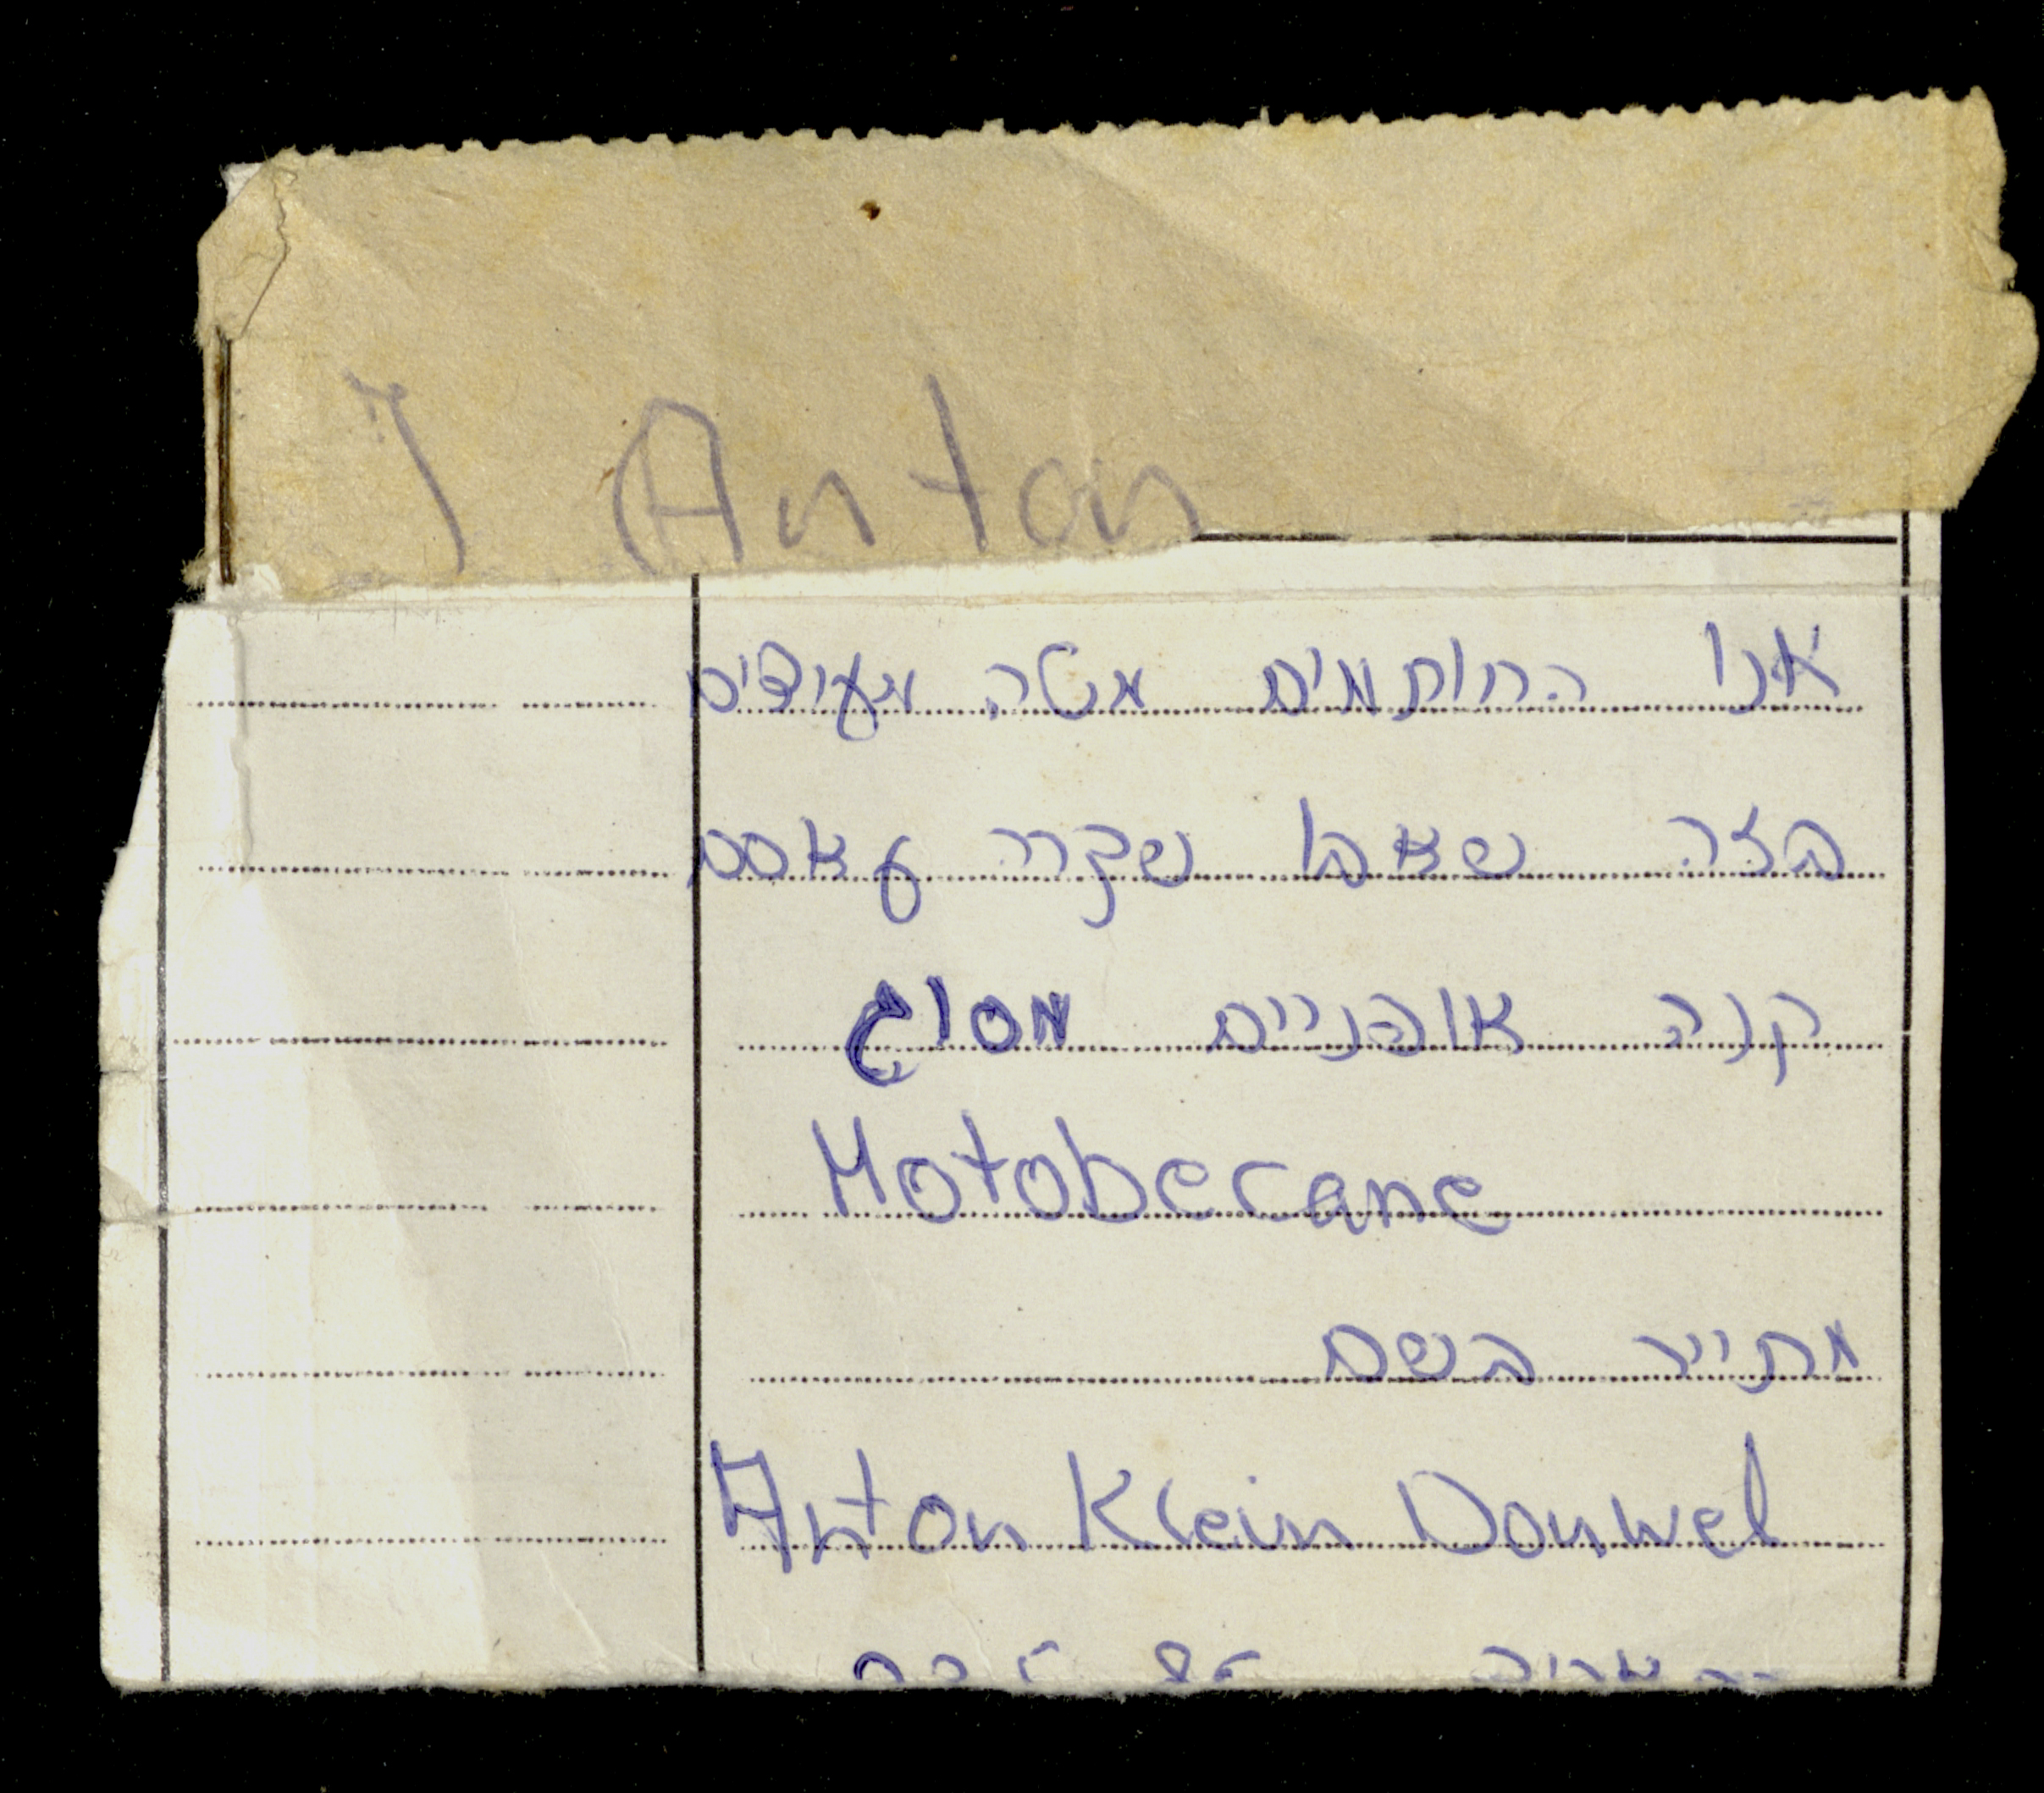 I Anton
אנו החותמים מטה מעידים
בזה שאבו שקרה עאסם
קנה אופניים מסוג
Motobecane
מתייר בשם
Anton Klein Douwel